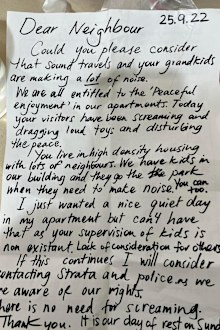 25.9.22
Dear Neighbour
Could you please consider
that sound travels and your grandkids
are making a lot of noise.
We are all entitled to the 'Peaceful
enjoyment' in our apartments. Today
your visitors have been screaming and
dragging loud toys and disturbing
the peace.
You live in high density housing
with lots of neighbours. We have kids in
our building and they go to the park
when they need to make noise. You can
too.
I just wanted a nice quiet day
in my apartment but can't have
that as your supervision of kids is
non existant. Lack of consideration for others
If this continues I will consider
contacting Strata and police as we
are aware of our rights.
There is no need for screaming.
Thank you. It is our day of rest on Sunday